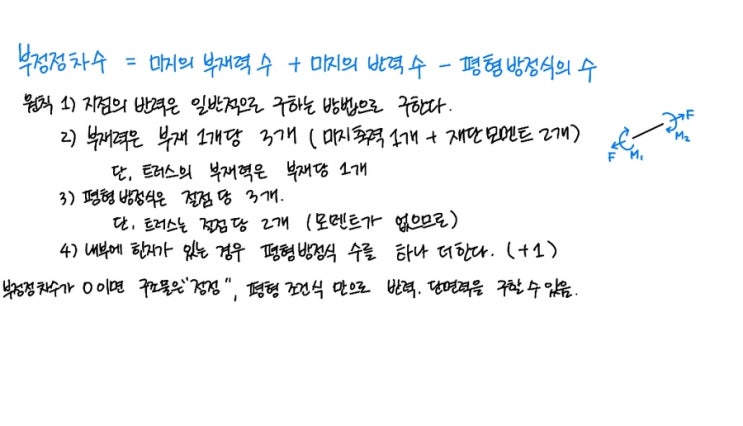 부정정차수 = 미지의 부재력 수 + 미지의 반력 수 - 평형방정식의 수
원칙 1) 지점의 반력은 일반적으로 구하는 방법으로 구한다.
2) 부재력은 부재 1개당 3개 (미지축력 1개 + 재단모멘트 2개)
단, 트러스의 부재력은 부재당 1개
3) 평형방정식은 절점당 3개.
단, 트러스는 절점당 2개 (모멘트가 없으므로)
4) 내부에 힌지가 있는 경우 평형방정식 수를 하나 더한다. (+1)
부정정차수가 0이면 구조물은 "정정", 평형 조건식 만으로 반력, 단면력을 구할 수 있음.
F M₁ M₂ F